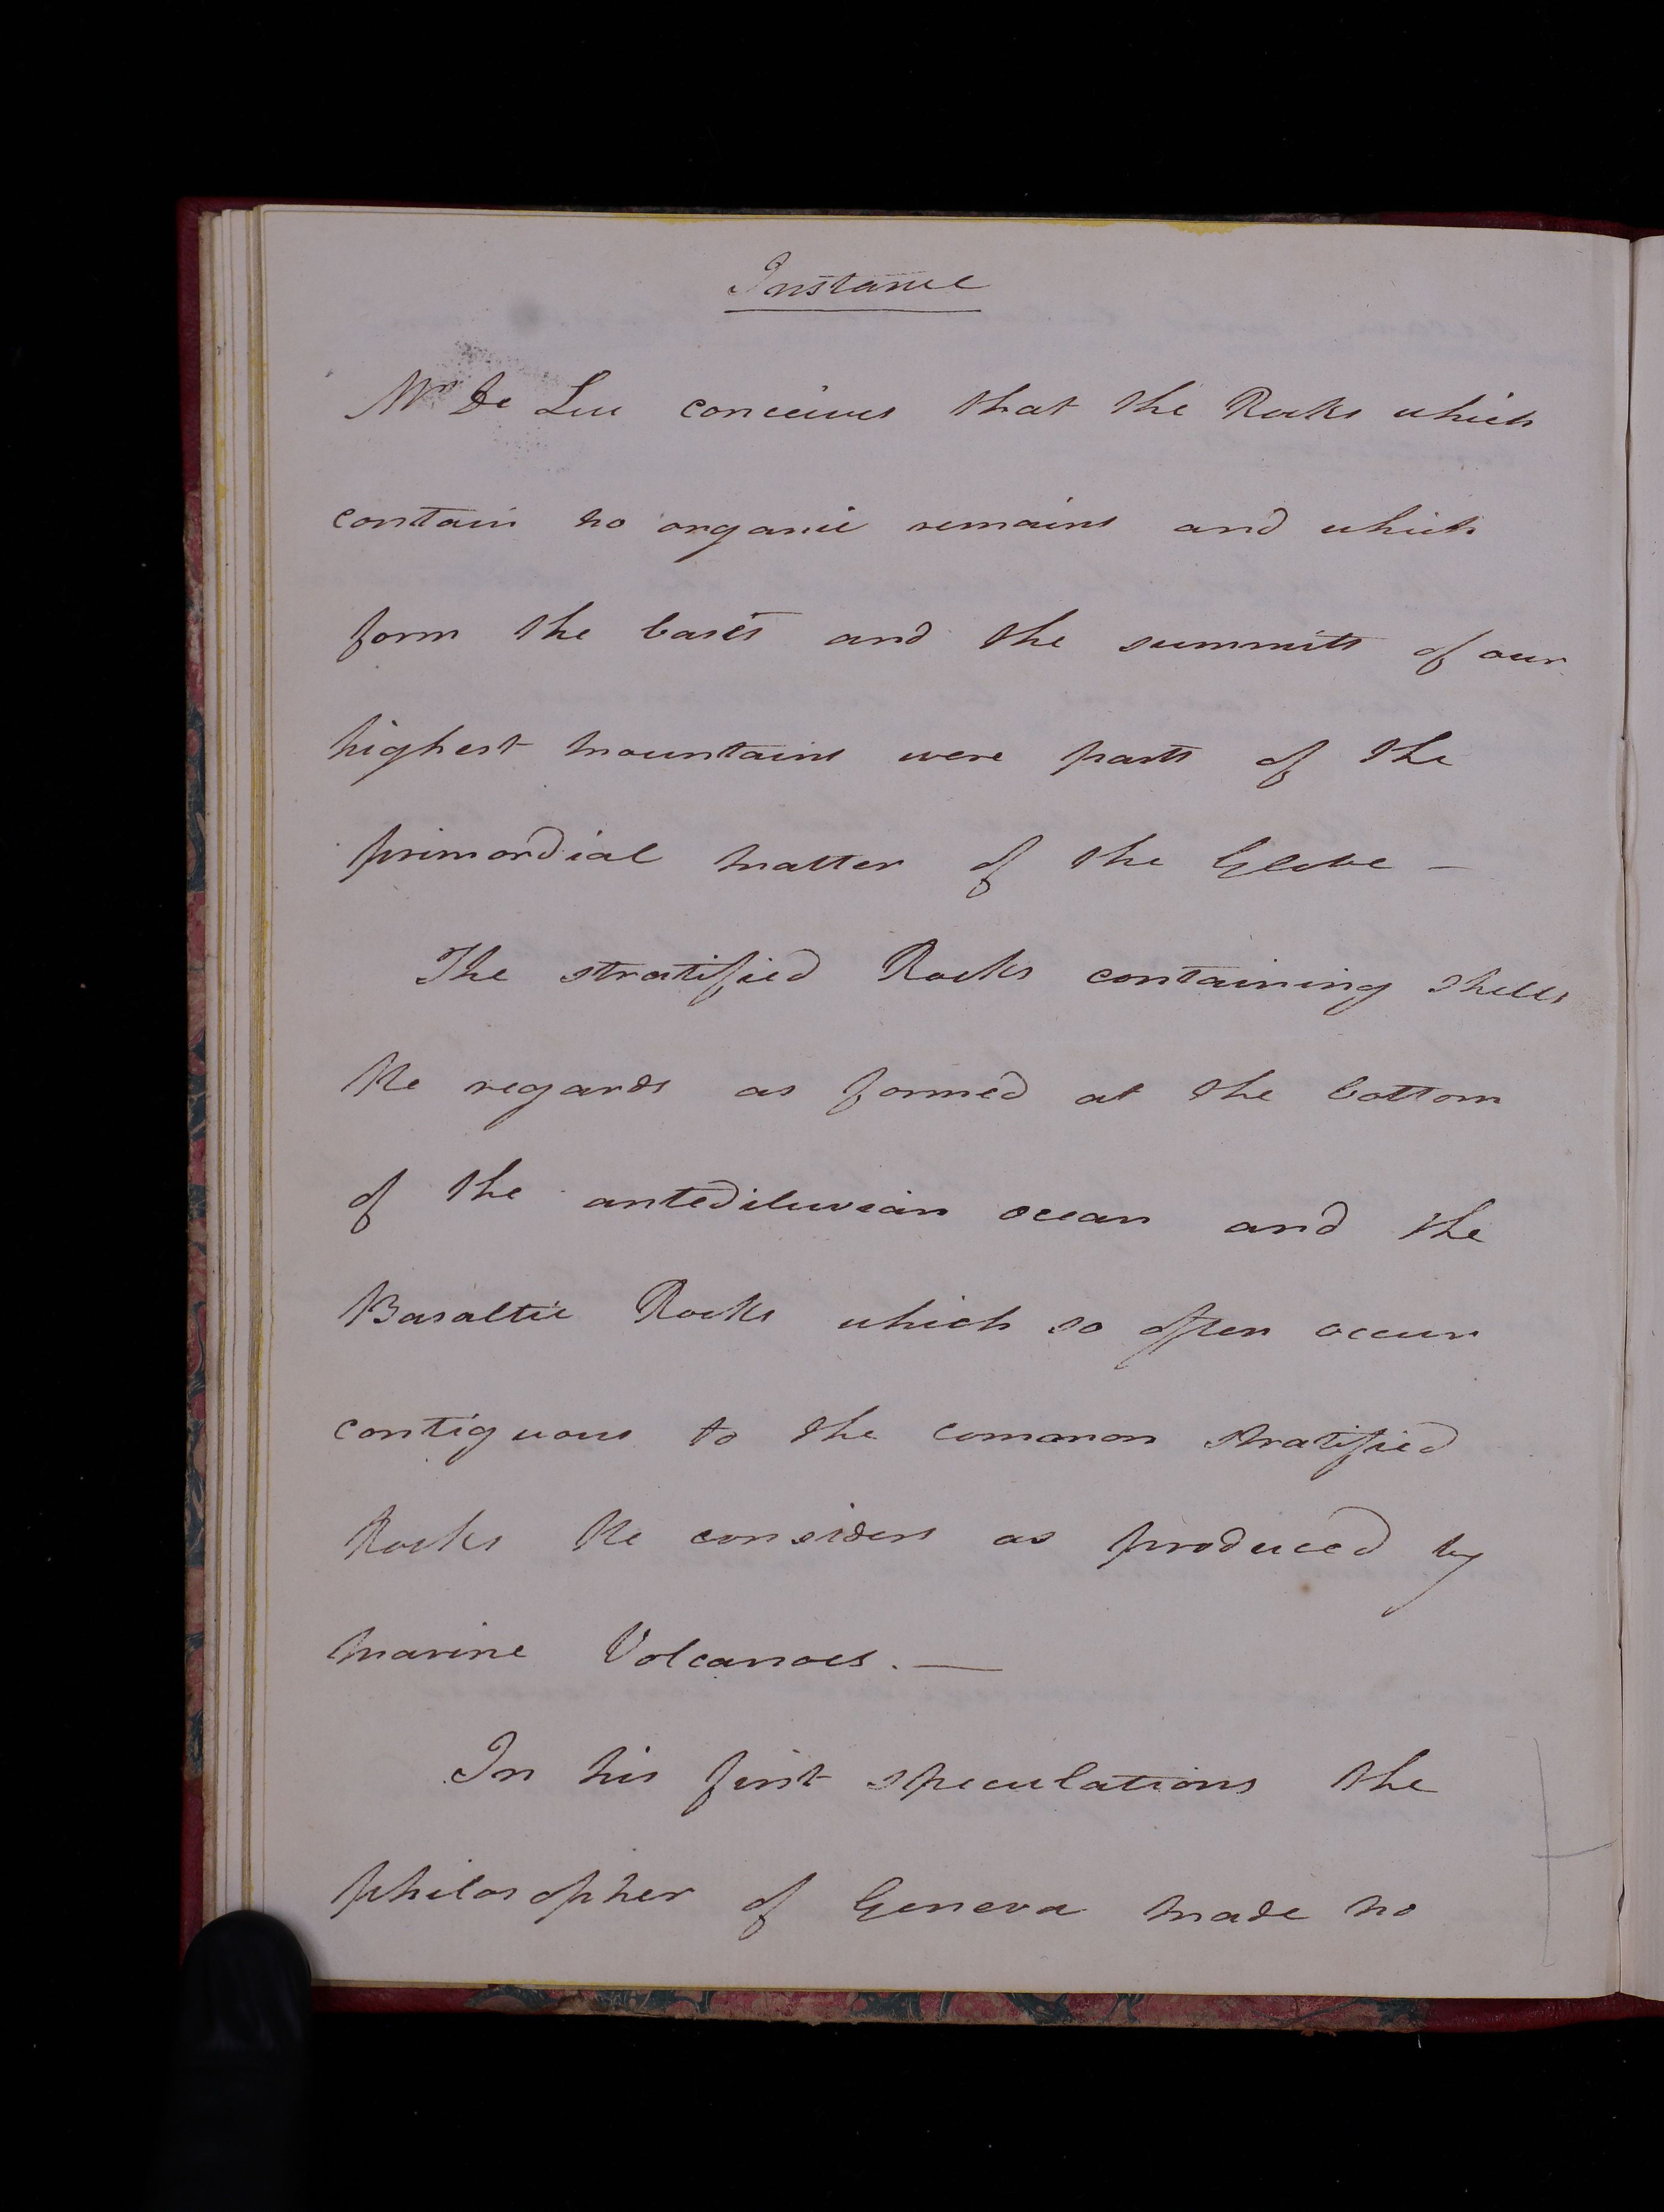 Instance
Mr De Luc conceives that the Rocks which
contain no organic remains and which
form the basis and the summits of our
highest mountains were parts of the
primordial matter of the Globe —
The stratified Rocks containing shells
He regards as formed at the bottom
of the antediluvian ocean and the
Basaltic Rocks which so often occur
contiguous to the common stratified
Rocks He considers as produced by
marine Volcanoes. —
In his first speculations the
philosopher of Geneva made no